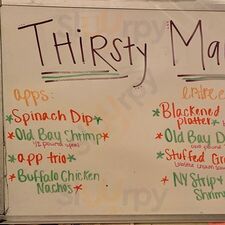 THIRSTY Ma
apps:
entrée
*Spinach Dip*
*Old Bay Shrimp*
1/2 pound
*app trio*
*Buffalo Chicken
Nachos*
*Blackened
platter*
*Old Bay D
*Stuffed
*NY Strip
Shrim